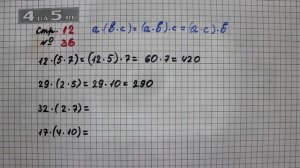 4 DA 5.
стр. 12
№ 36
a·(b·c)=(a·b)·c=(a·c)·b
12·(5·7)=(12·5)·7= 60·7=420
29·(2·5)=29·10=290
32·(2·7)=
17·(4·10)=